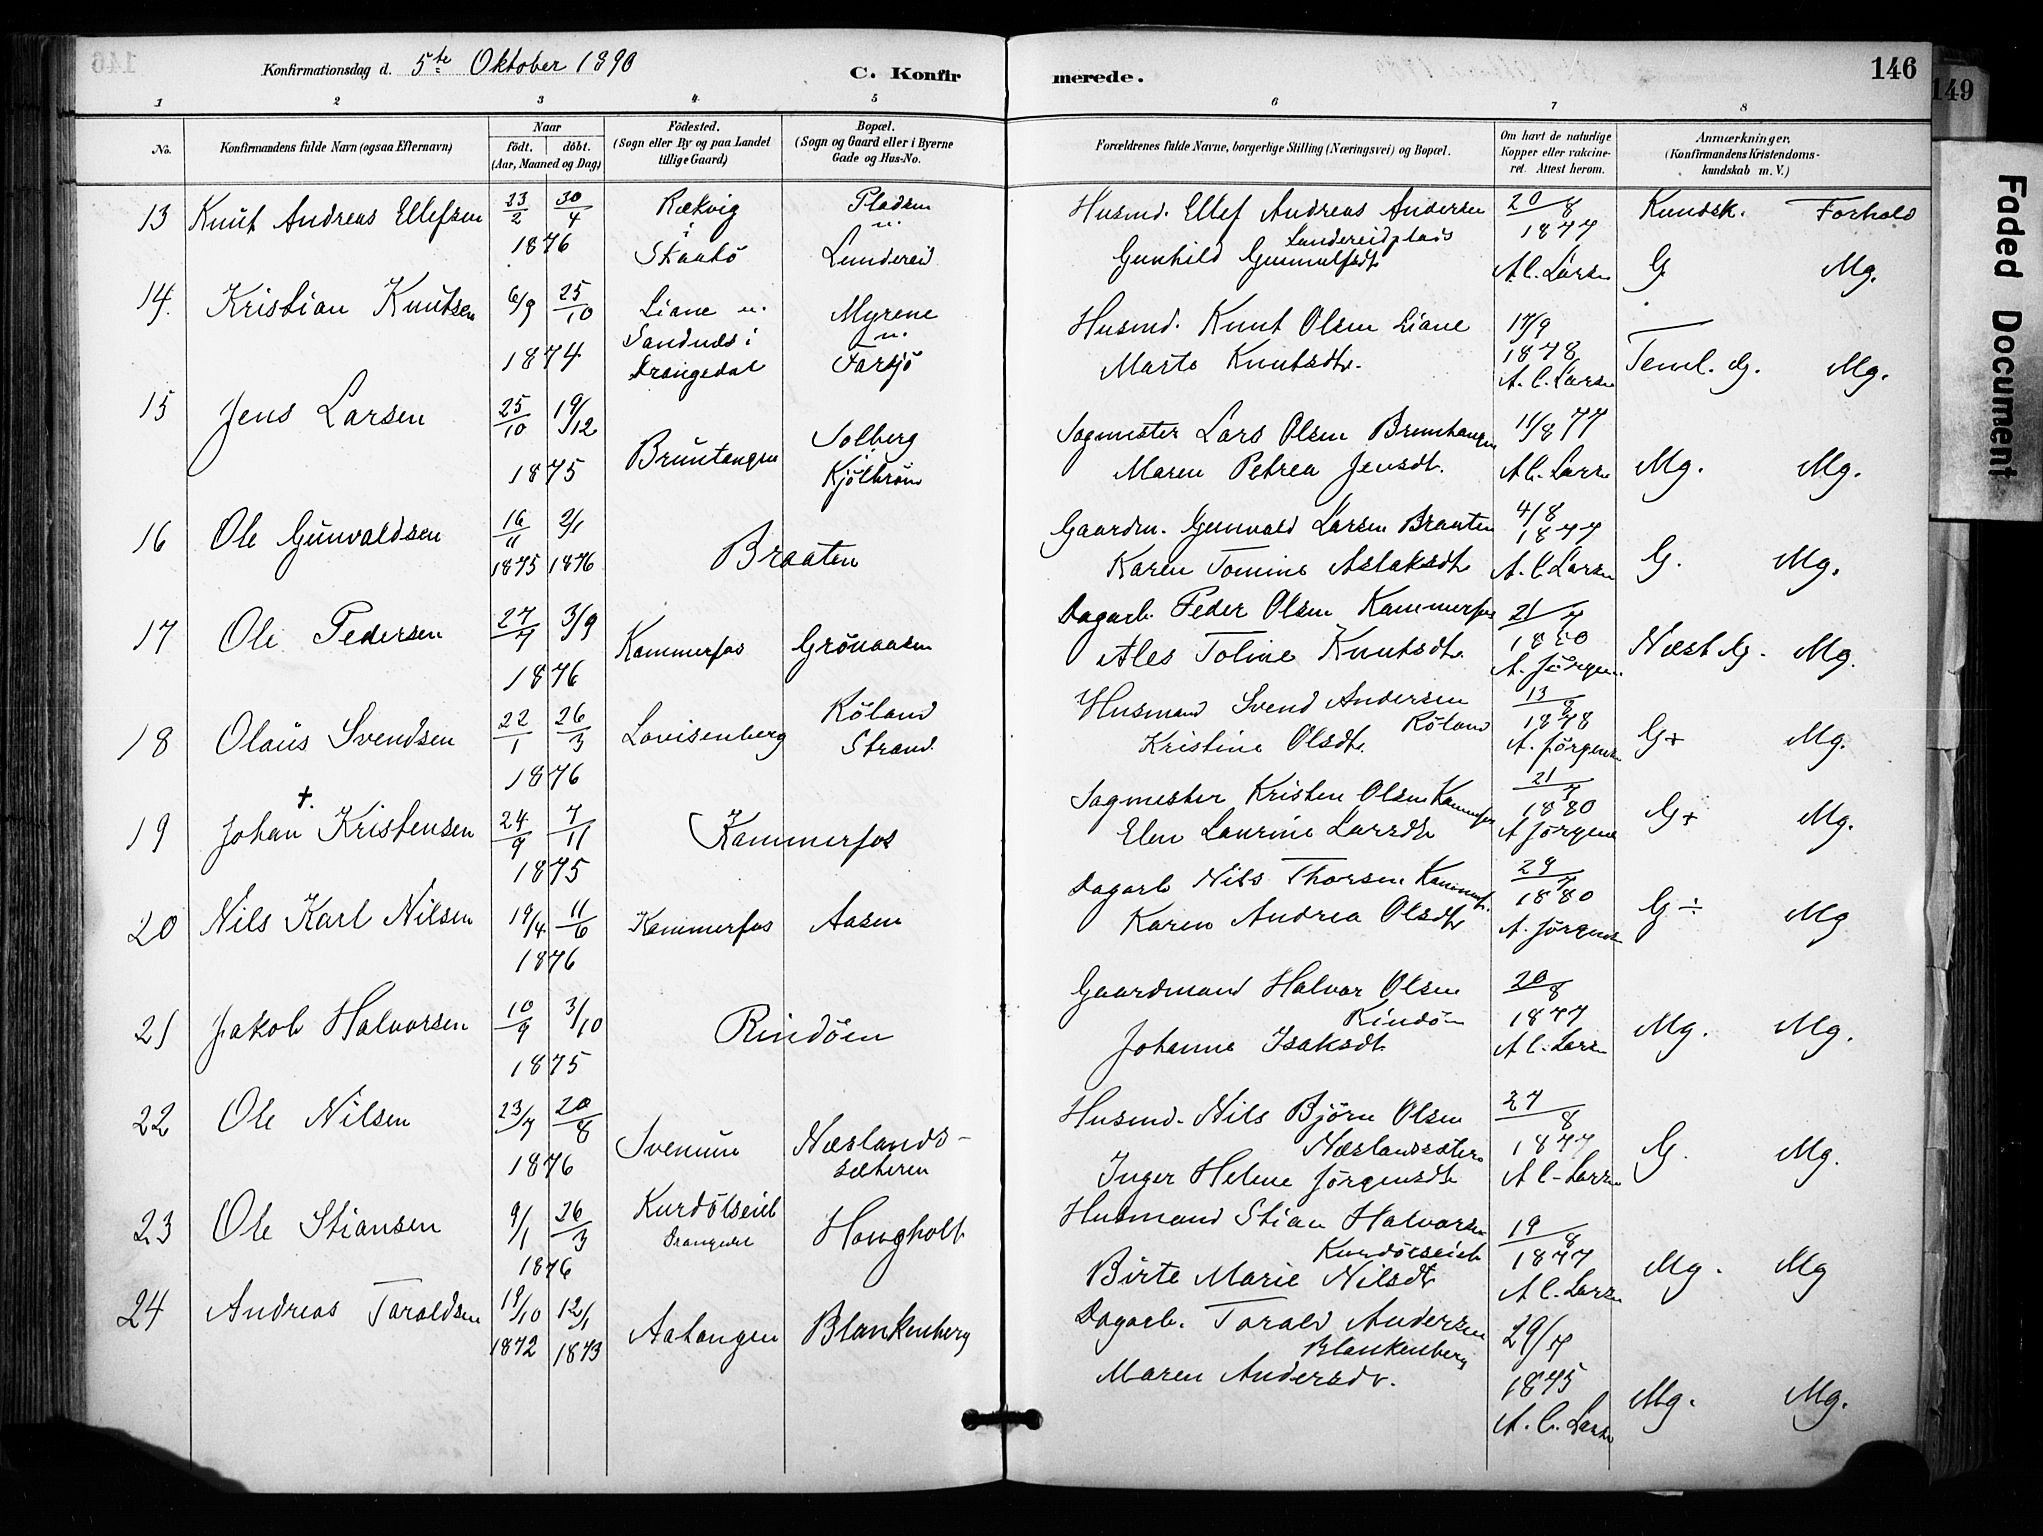 146
Konfirmationsdag d. 5te Oktober 1890
C. Konfirmerede.
146
149
1 2 3 4 5 6 7 8
No.
Konfirmandens fulde Navn (ogsaa Efternavn)
Naar
födt. döbt.
(Aar, Maaned og Dag)
Födested.
(Sogn eller By og paa Landet
tillige Gaard)
Bopæl.
(Sogn og Gaard eller i Byerne
Gade og Hus-No.
Forældrenes fulde Navne, borgerlige Stilling (Næringsvei) og Bopæl.
Om havt de naturlige
Kopper eller vakcine-
ret. Attest herom.
Anmærkninger.
(Konfirmandens Kristendoms-
kundskab m. V.)
Faded Document
13 Knut Andreas Ellefsen 23/2 30/4 Rækvig Pladsen Husmd. Ellef Andreas Andersen 20/8 Kundsk. Forhold
1876 i u. Lundereidplads 1877
Skaatö Lundereid Gunhild Gunnulfsdt. A.C. Larsen G Mg.
14. Kristian Knutsen 6/9 25/10 Liane u. Myrene Husmd. Knut Olsen Liane 17/9
1874 Sandnes i u. 1878 Teml. G. Mg.
Drangedal Farsjö Marte Knutsdt. A. C. Larsen
15 Jens Larsen 25/10 19/12 Solberg Sagmester Lars Olsen 11/8 77
1875 Bruntangen Kjölbrönd Maren Petrea Jensdt. A.C. Larsen Mg. Mg.
16 Ole Gunvaldsen 16/11 2/1 Braaten Gaardm. Gunvald Larsen Braaten 4/8
1875 1876 1877 G. Mg.
Karen Tomine Aslaksdt. A. C. Larsen
17 Ole Pedersen 27/7 3/9 Kammerfos Grönaasen Dagarb. Peder Olsen Kammerfos 21/7
1876 Ales Toline Knutsdt. 1880 Næst G. Mg.
A. Jörgens.
18 Olaus Svendsen 22/1 26/3 Lovisenberg Röland Husmand Svend Andersen 13/8
1876 Strand. Röland 1878 G+ Mg.
Kristine Olsdt. A. Jörgensen
19 Johan †. Kristensen 24/9 7/11 Kammerfos Sagmester Kristen Olsen Kammerfos 21/7
1875 Elen Laurine Larsdt. 1880 G+ Mg.
A Jörgens
20 Nils Karl Nilsen 19/4 11/6 Kammerfos Aasen Dagarb Nils Thorsen Kammerf. 29/7
1876 Karen Andrea Olsdt. 1880 G ÷ Mg
A. Jörgens
21 Jakob Halvorsen 10/9 3/10 Rindöen Gaardmand Halvor Olsen 20/8
1875 Rindöen 1877 Mg. Mg.
Johanne Isaksdt. A C. Larsen
22 Ole Nilsen 23/7 20/8 Husmd. Nils Björn Olsen 27/8
1876 Svenum Næslands- Næslandssæter 1877 G. Mg.
sæteren Inger Helene Jörgensdt. A C. Larsen
23 Ole Stiansen 9/1 26/3 Kurdölseid Hougholt Husmand Stian Halvorsen 19/8
1876 Drangedal Kurdölseid 1877 Mg. Mg
Birte Marie Nilsdt. A C. Larsen
24 Andreas Taraldsen 19/10 12/1 Aatangen Blankenberg Dagarb. Tarald Andersen 29/7
1872 1873 Blankenberg 1875
Maren Andersdt. A. C. Larsen Mg. Mg.